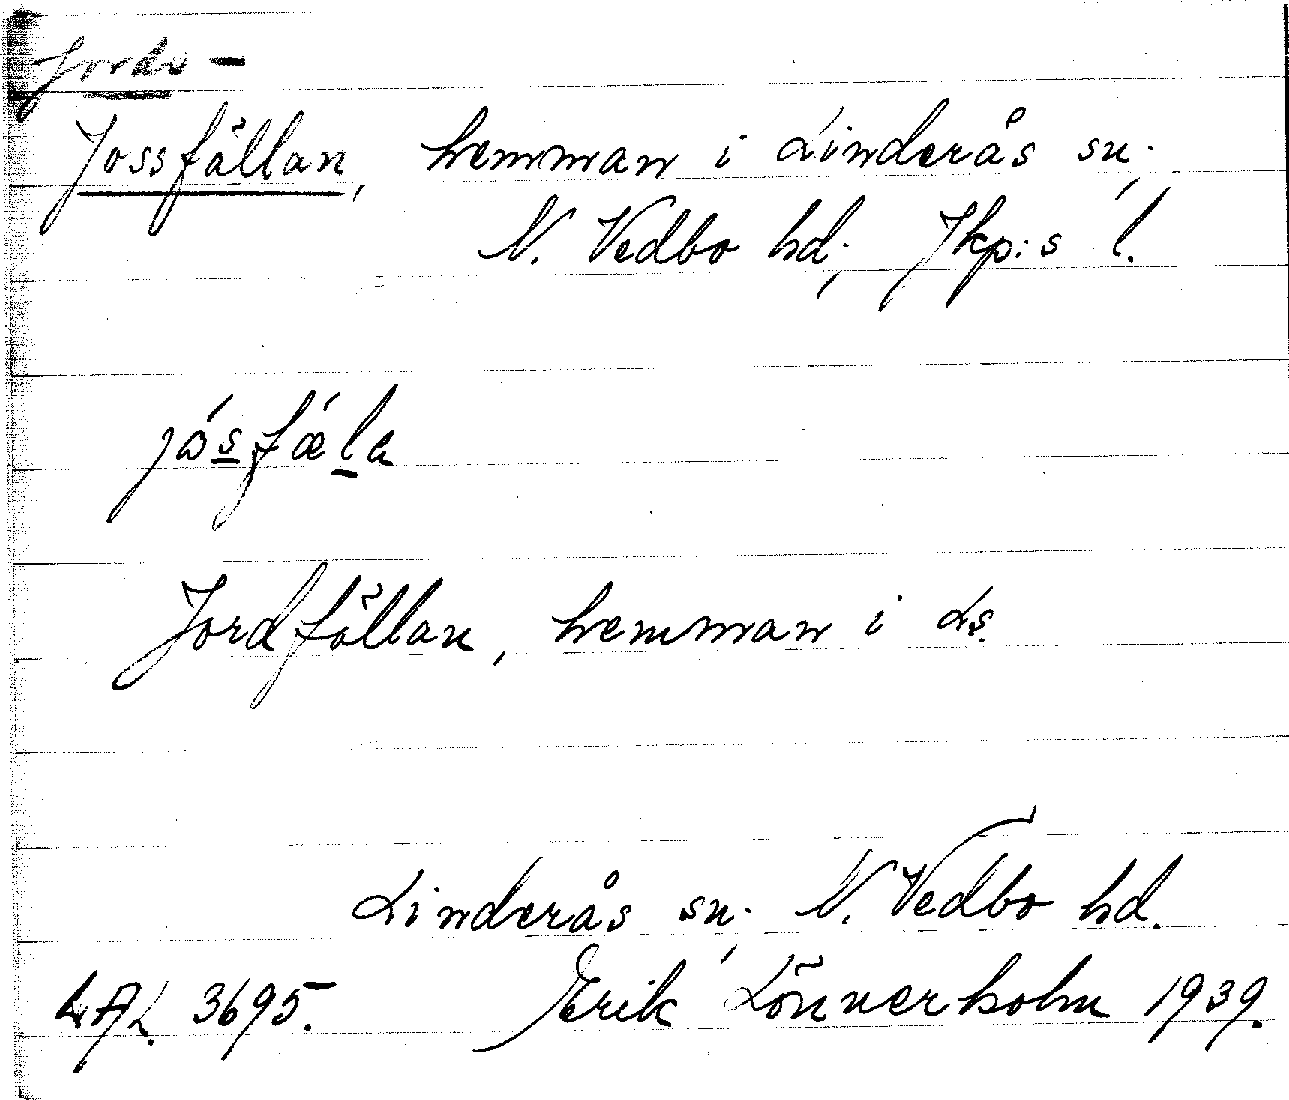 Jords-
Jossfällan, hemman i Linderås sn.,
N. Vedbo hd., Jkp:s l.
jósfǽla
Jordfällan, hemman i Ls.
Linderås sn., N. Vedbo hd.
LAL 3695. Erik Lönnerholm 1939.